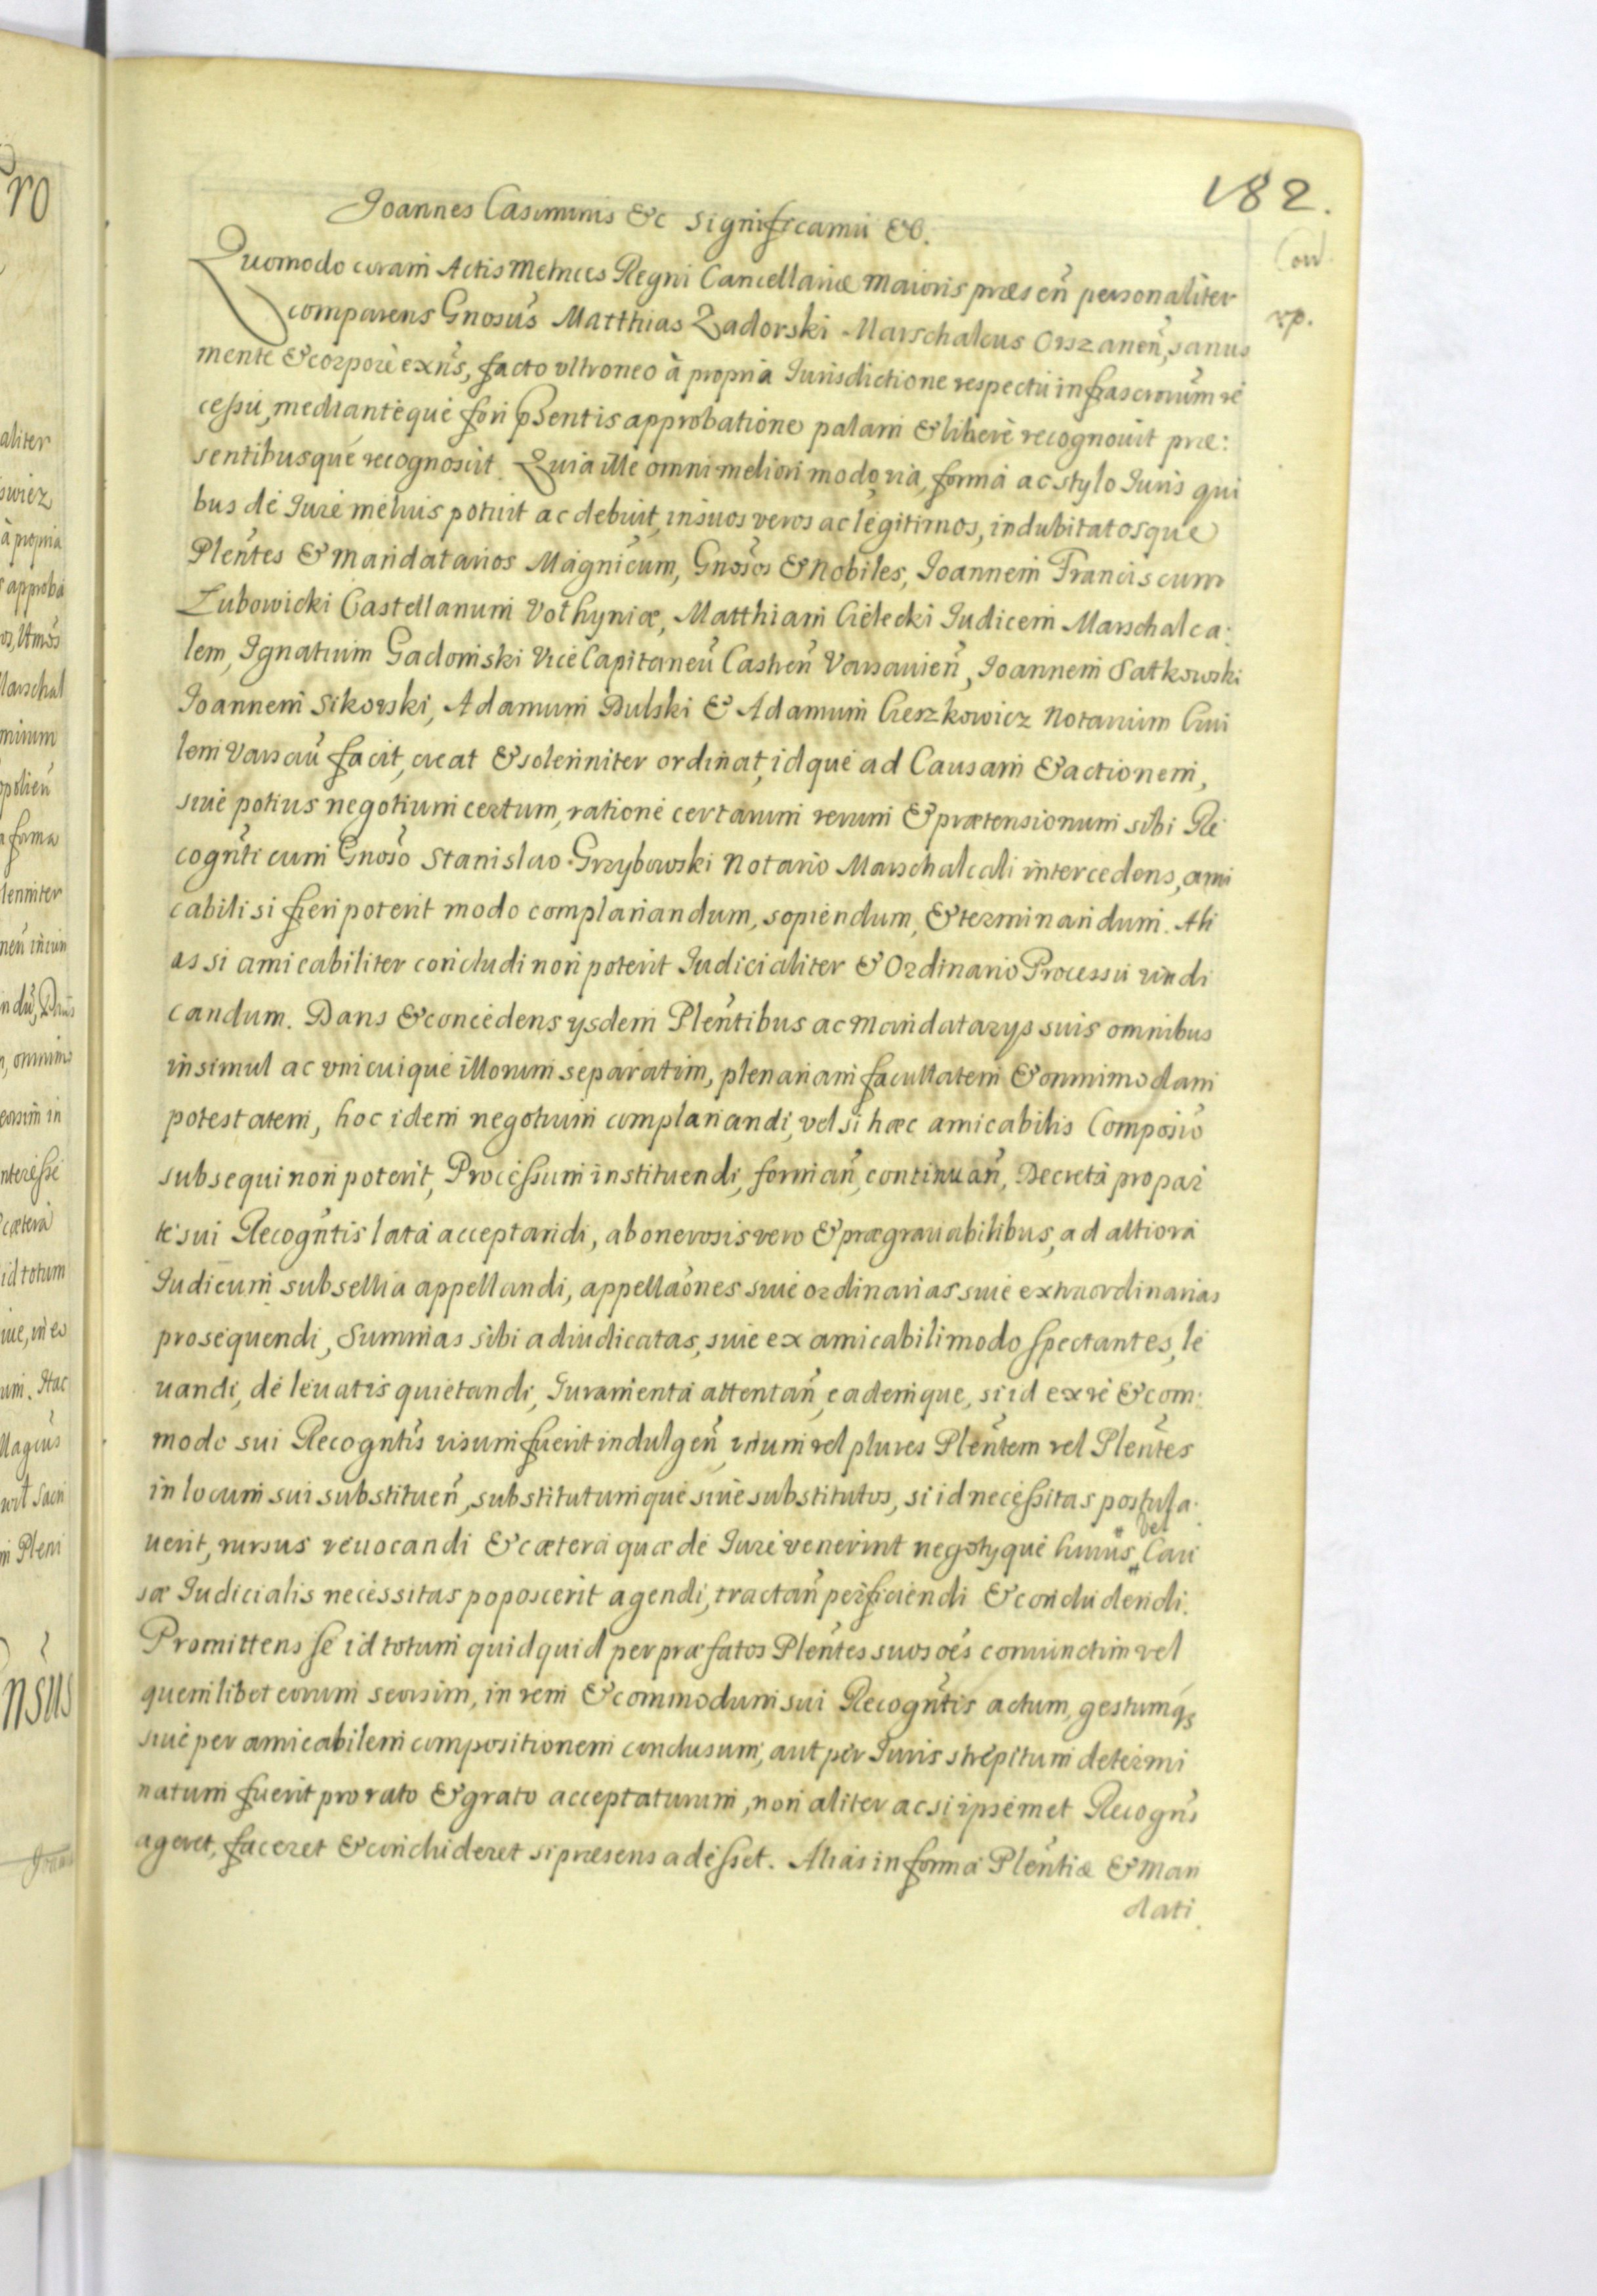 182.
Joannes Casimirus &c significamu &c.
Con
Quomodo coram Actis Metrices Regni Cancellariæ Maioris præsen̄ personaliter
rp.
comparens Gnosus Matthias Zadorski Marschalcus Orszanen̄, sanus
mente & corpore exn̄s, facto ultroneo à propria Jurisdictione respectu infrascriorum re
cessu, mediantèque fori pñsentis approbatione palam & libere recognovit præ:
sentibusque recognoscit. Quia ille omni meliori modo, via, forma ac stylo Juris qui
bus de Jure melius potuit ac debuit, in suos veros ac legitimos, indubitatosque
Plen̄tes & Mandatarios Magnicum, Gnosos & Nobiles, Joannem Franciscum
Lubowicki Castellanum Volhyniæ, Matthiam Cielecki Judicem Marschalca:
lem, Ignatium Gadomski Vice Capitaneū Castren̄ Varsavien̄, Joannem Satkowski
Joannem Sikorski, Adamum Dulski & Adamum Cieszkowicz Notarium Civi
lem Varsaū facit, creat & solenniter ordinat, idque ad Causam & actionem,
sive potius negotium certum, ratione certarum rerum & prætensionum sibi Re
cogn̄ti cum Gnoso Stanislao Grzybowski Notario Marschalcali intercedens, ami
cabili si fieri poterit modo complanandum, sopiendum, & terminandum. Ali
as si amicabiliter concludi non poterit Judicialiter & Ordinario Processu vindi
candum. Dans & concedens ysdem Plen̄tibus ac Mandatarys suis omnibus
insimul ac unicuique illorum separatim, plenariam facultatem & omnimodam
potestatem, hoc idem negotium complanandi, vel si hæc amicabilis Composiō
subsequi non poterit, Processum instituendi, forman̄, continuan̄, Decreta pro par
te sui Recogn̄tis lata acceptandi, ab onerosis vero & prægravabilibus, ad altiora
Judicum subsellia appellandi, appellaōnes sive ordinarias sive extraordinarias
prosequendi, Summas sibi adiudicatas, sive ex amicabili modo spectantes, le
vandi, de levatis quietandi, Juramenta attentan̄, eademque, si id ex re & com:
modo sui Recogn̄tis visum fuerit indulgen̄, unum vel plures Plen̄tem vel Plen̄tes
in locum sui substituen̄, substitutumque sive substitutos, si id necessitas postula:
vel
verit, rursus revocandi & cætera quæ de Jure venerint negotyque huius Cau
sæ Judicialis necessitas poposcerit agendi, tractan̄ perficiendi & concludendi.
Promittens se id totum quidquid per præfatos Plen̄tes suos oēs coniunctim vel
quemlibet eorum seorsim, in rem & commodum sui Recogn̄tis actum, gestumq;
sive per amicabilem compositionem conclusum, aut per Juris strepitum determi
natum fuerit pro rato & grato acceptaturum, non aliter ac si ipsemet Recogn̄s
ageret, faceret & concluderet si præsens adesset. Alias in forma Plen̄tiæ & Man
dati.